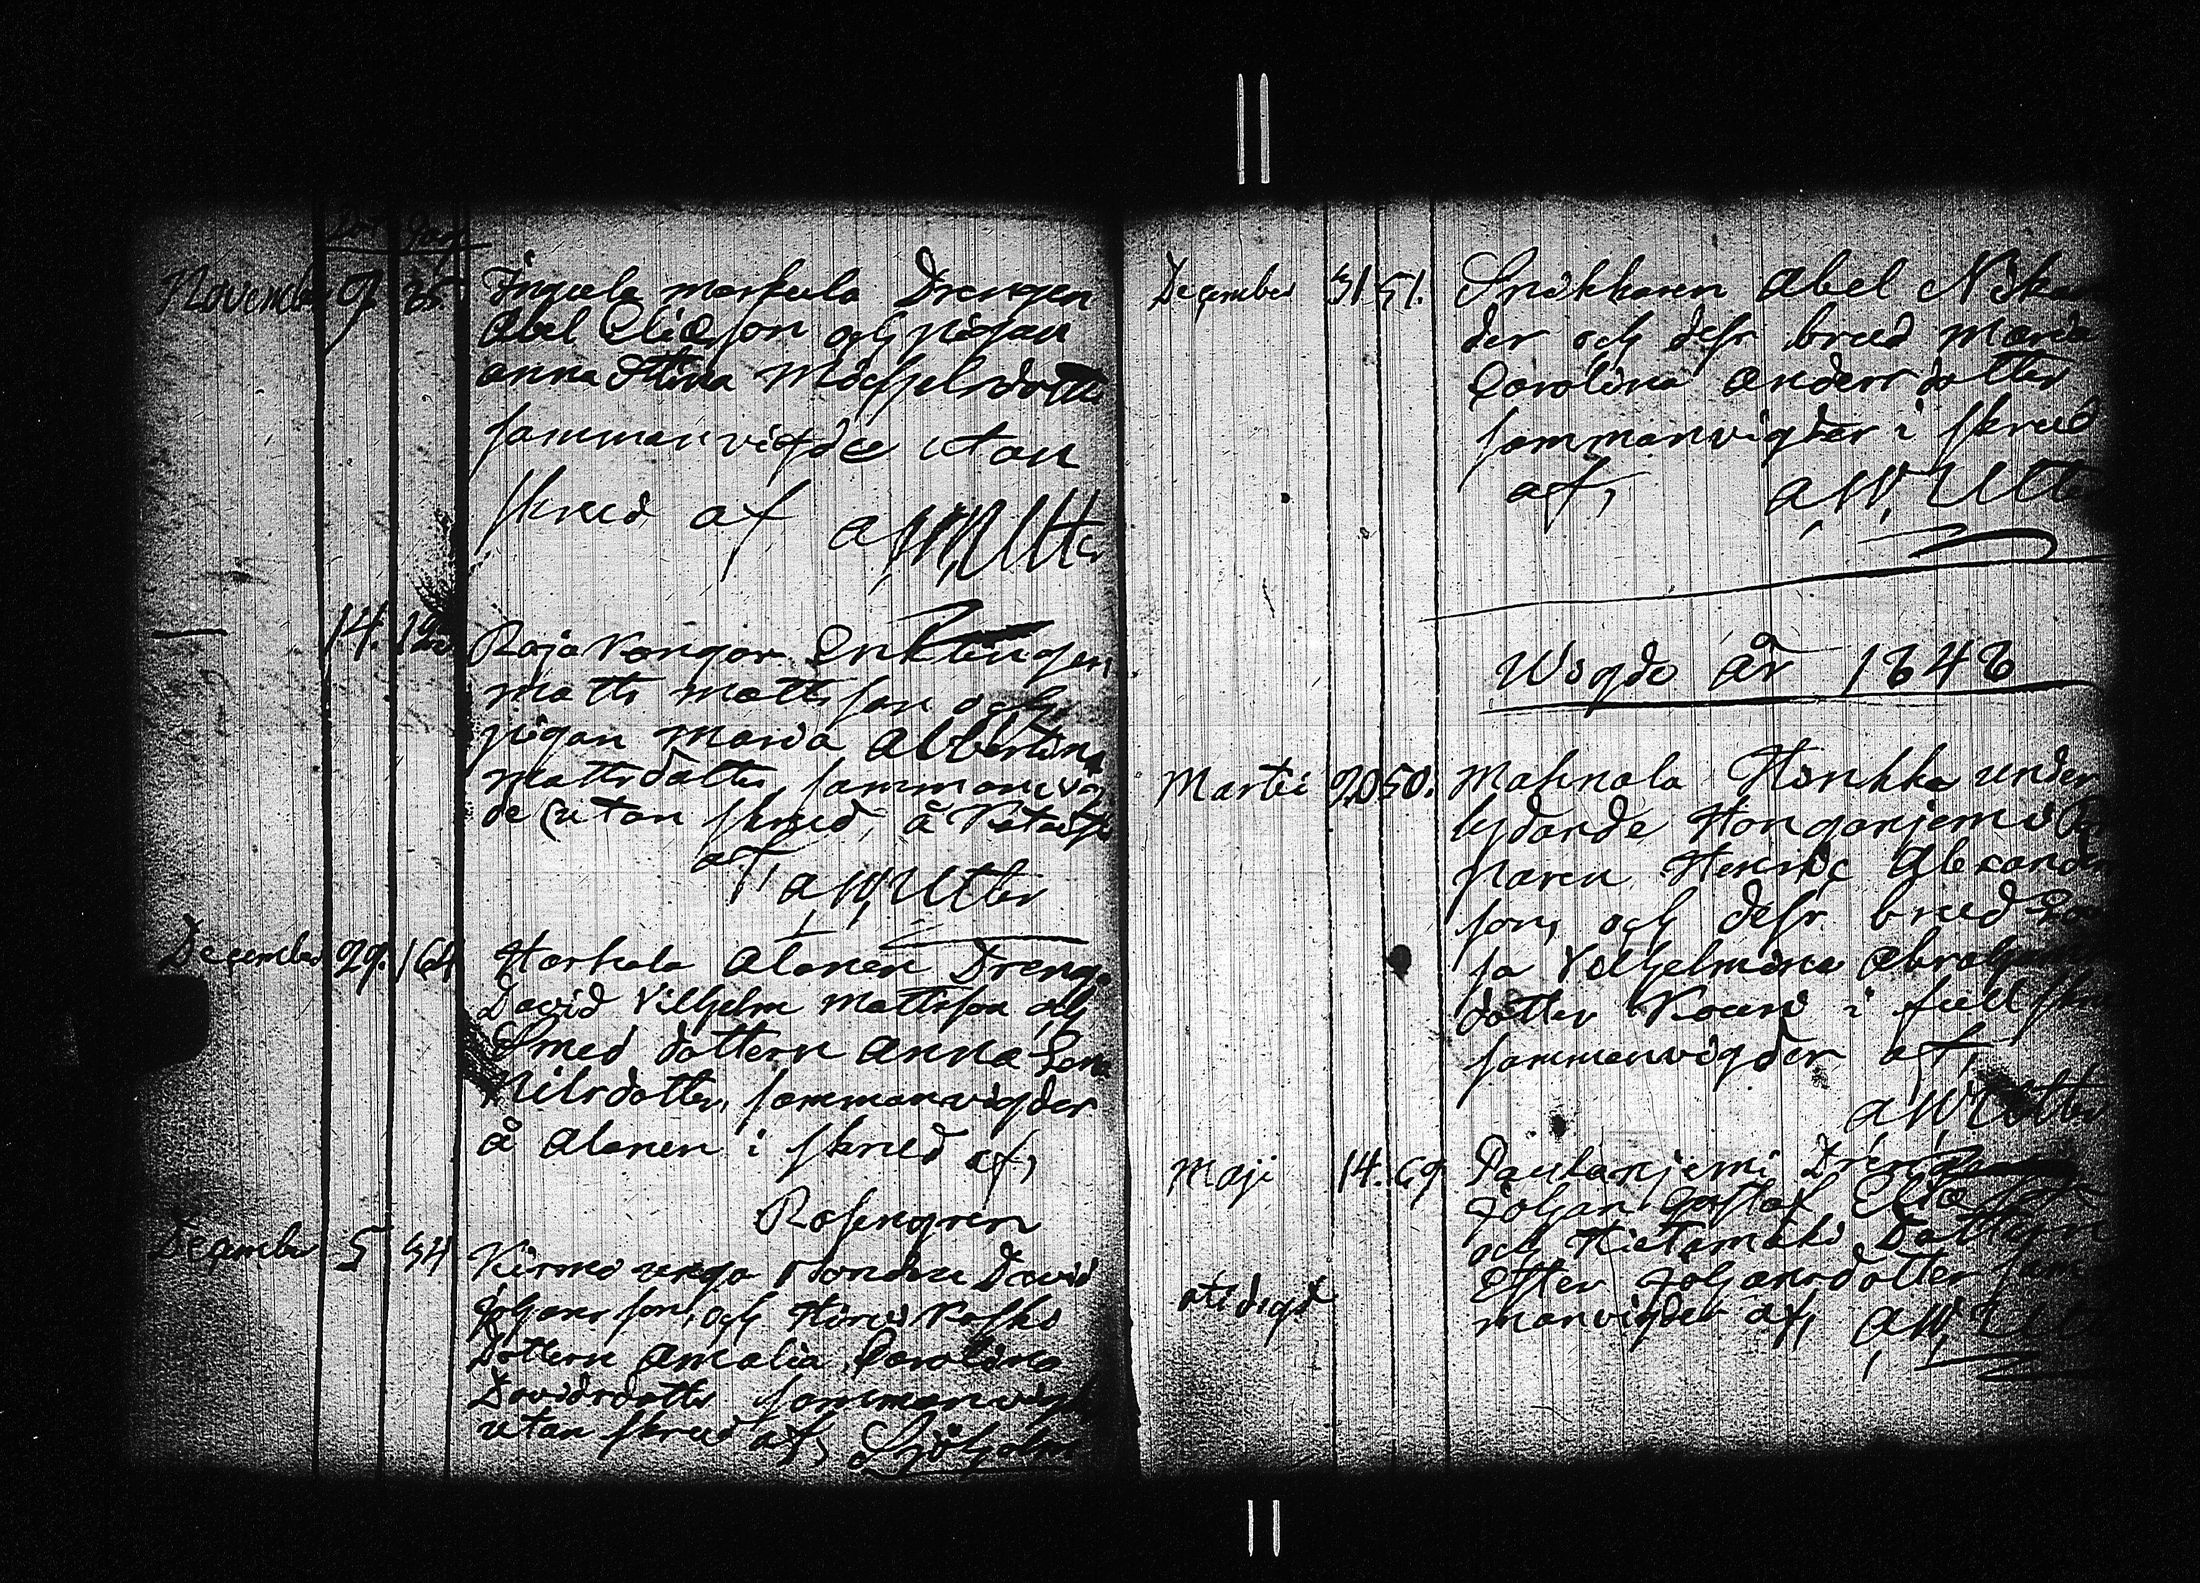 November 9. 85. Ingeela markula Drengen
Abel Eliæson och pigan
anna Stina Michelsdotter
sammanvigde utan
skrud af A W Utter
— 14. 12 Raja Kangar Enklingen
matts mattsson och
pigan maria Albertina
mattsdotter sammanvig
de utan skrud, å
af, A W Utter
December 29. 164 Harkala Alanen Dreng
David Vilhelm mattsson och
Smed dottern Anna Lena
Nilsdotter, sammanvigder
å Alanen i skrud af,
Rosengren
December 5 34 Kirmo unga Bonden David
Johansson, och
Dottern Amalia Carolina
Davidsdotter sammanvigd
utan skrud af, Sjöholm
December 31. 51. Snikkaren Abel Nikan
der och dess brud Maria
Carolina Andersdotter
sammanvigder i skrud
af, A, W, Utter
Wigde år 1848
Martii 20 50. Mahnala Honkka under
lydande Honganjemi
Henric Alexanders
son, och dess brud Lovi
sa Vilhelmina Abrahams
dotter Kouri i full skrud
sammanvigder af,
A W Utter
Maji 14. 69 Paulanjemi Dreng
Johan Gustaf Eliæ son
och Hietamäki Dottern
Ester Johansdotter sam
manvigder af, A W, Utter